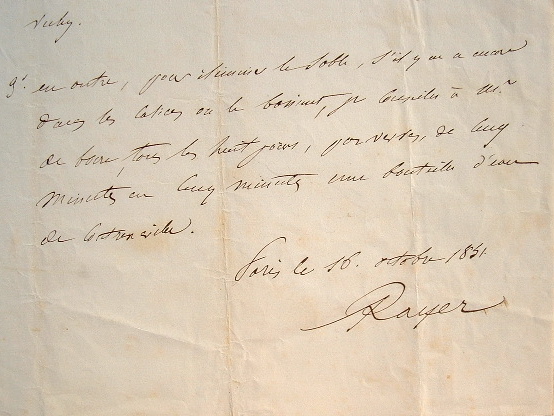 Vichy.
3° en outre, pour éliminer le sable, s'il y en a encore
dans les calices ou le bassinet, je conseille à Mr
de boire, tous les huit jours, par verres, de cinq
minutes en cinq minutes une bouteille d'eau
de Contrexeville.
Paris le 16 octobre 1851
Rayer